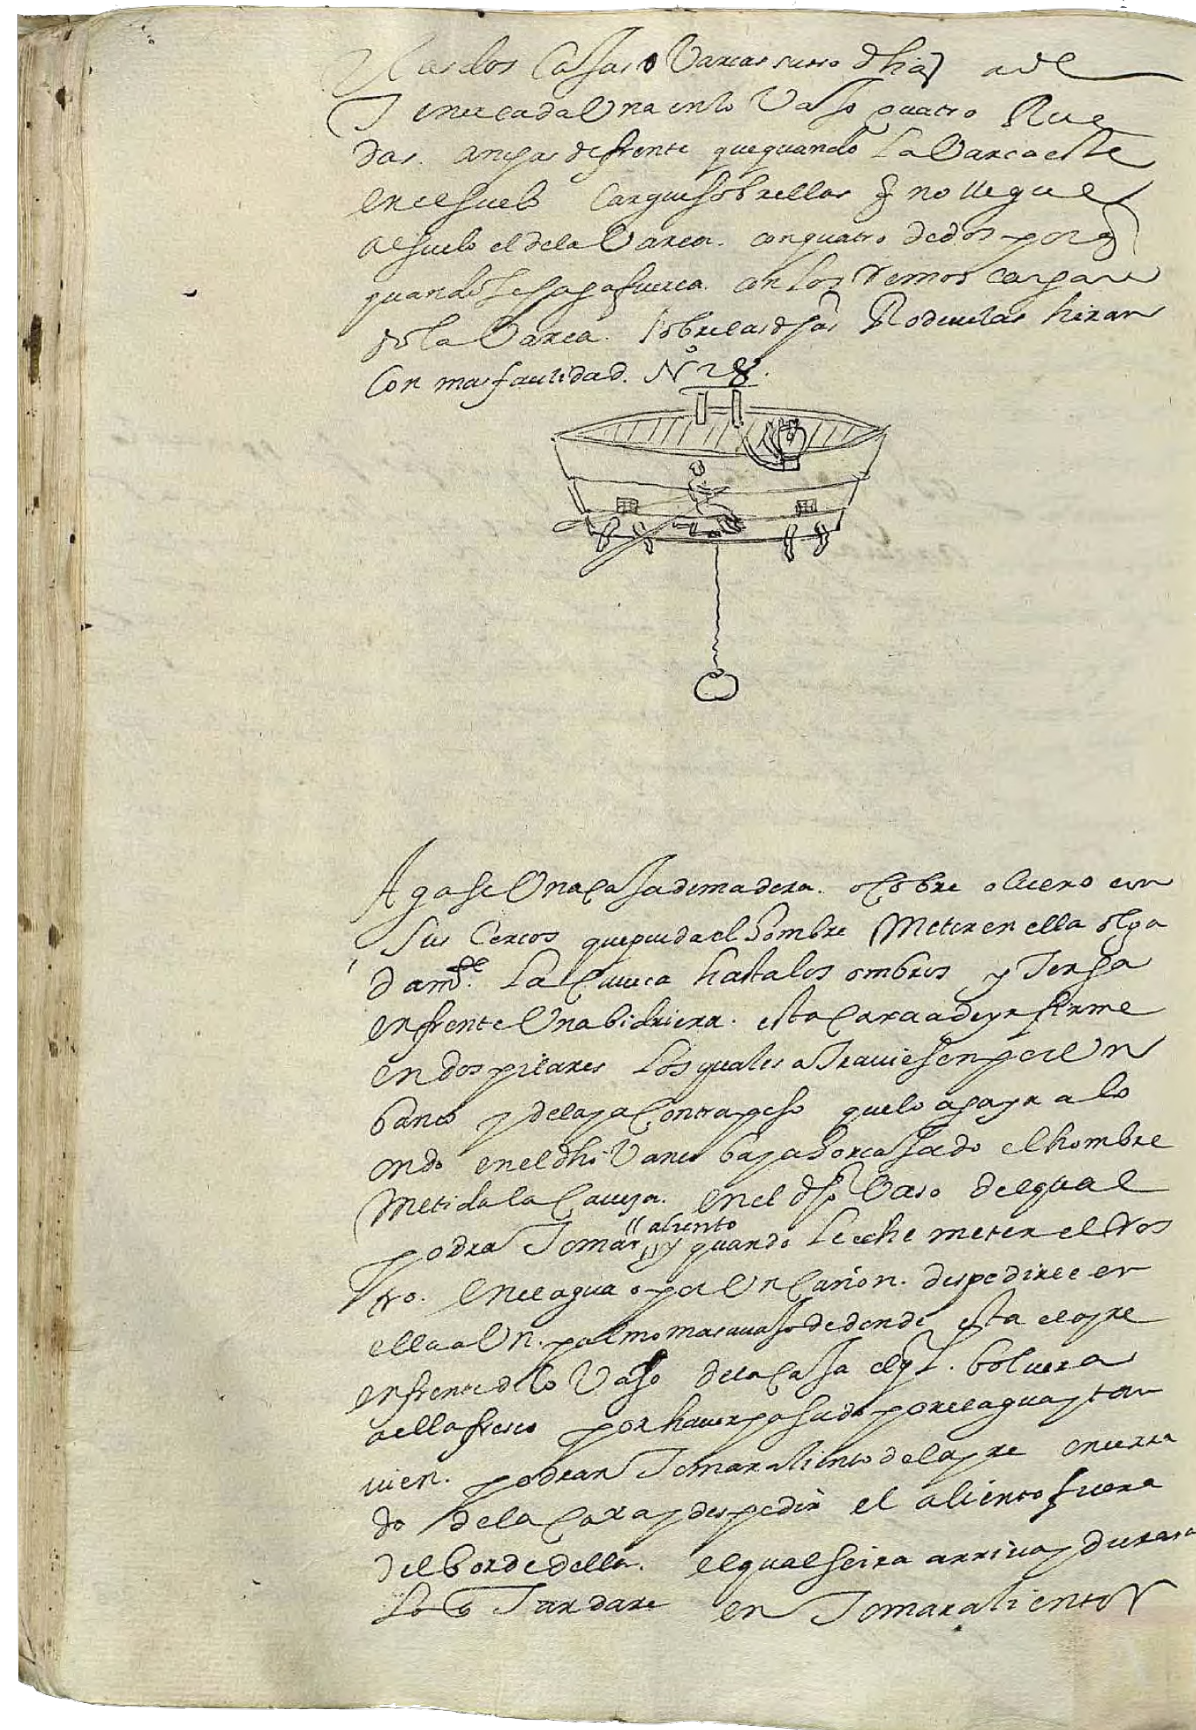 las dos Cassas o Varcas susso dhas a de
Tener cada Una en lo Vaso quatro Rue
das. anpas de frente que quando La Varca este
en el suelo Cargue sobrellas q no llegue
al suelo el de la Varca. con quatro dedos por q
quando se haga fuerca. con los Remos cargan
do la Varca. sobre las dhas Rodeuelas hiran
Con mas facilidad. Nº 28.
Agase Una Cassa de madera. o Cobre o Acero con
sus Cercos que pueda el hombre Meter en ella olga
damte. La Caueca hasta los ombros y Tenga
enfrente Una bidriera. esta Caxa a de yr firme
en dos pilares Los quales atrauiesen por Un
banco y de la Contrapeso que lo aga yr a lo
ondo en el dho Vanco baya Horcassado el hombre
Metida la Caueza. en el dho Vaso del qual
podra Tomar aliento y quando Le eche meter el Ros
tro. en el agua o por Un Cañon. despedirle en
ella a Un. palmo mas auaso de donde esta el ayre
enfrente de lo Vaso de la Cassa el ql. boluera
a ella fresco por hauer pasado por el agua y tan
uien. podran Tomar aliento del ayre encerra
do de la Caxa y despedir el aliento fuera
del borde della. el qual se ira arriua y durara
Lo q Tardare en Tomar aliento